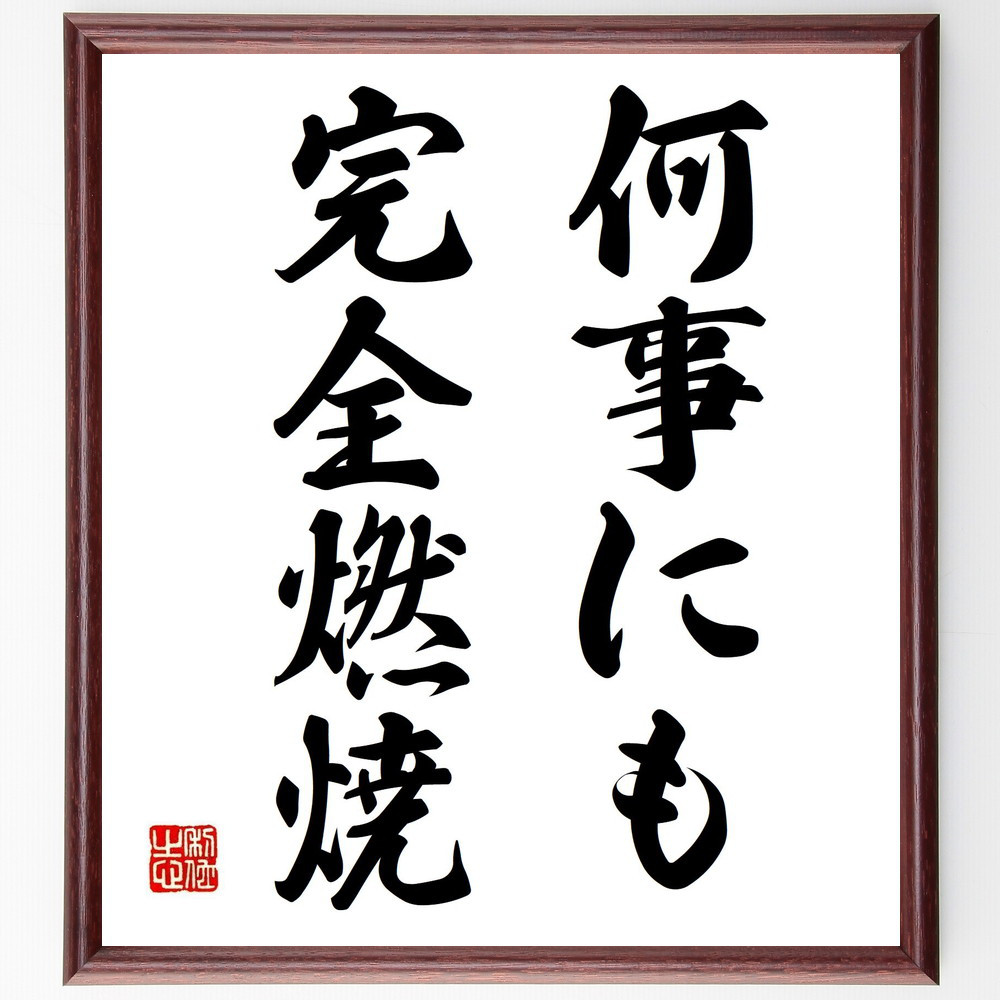 何事にも
完全燃焼